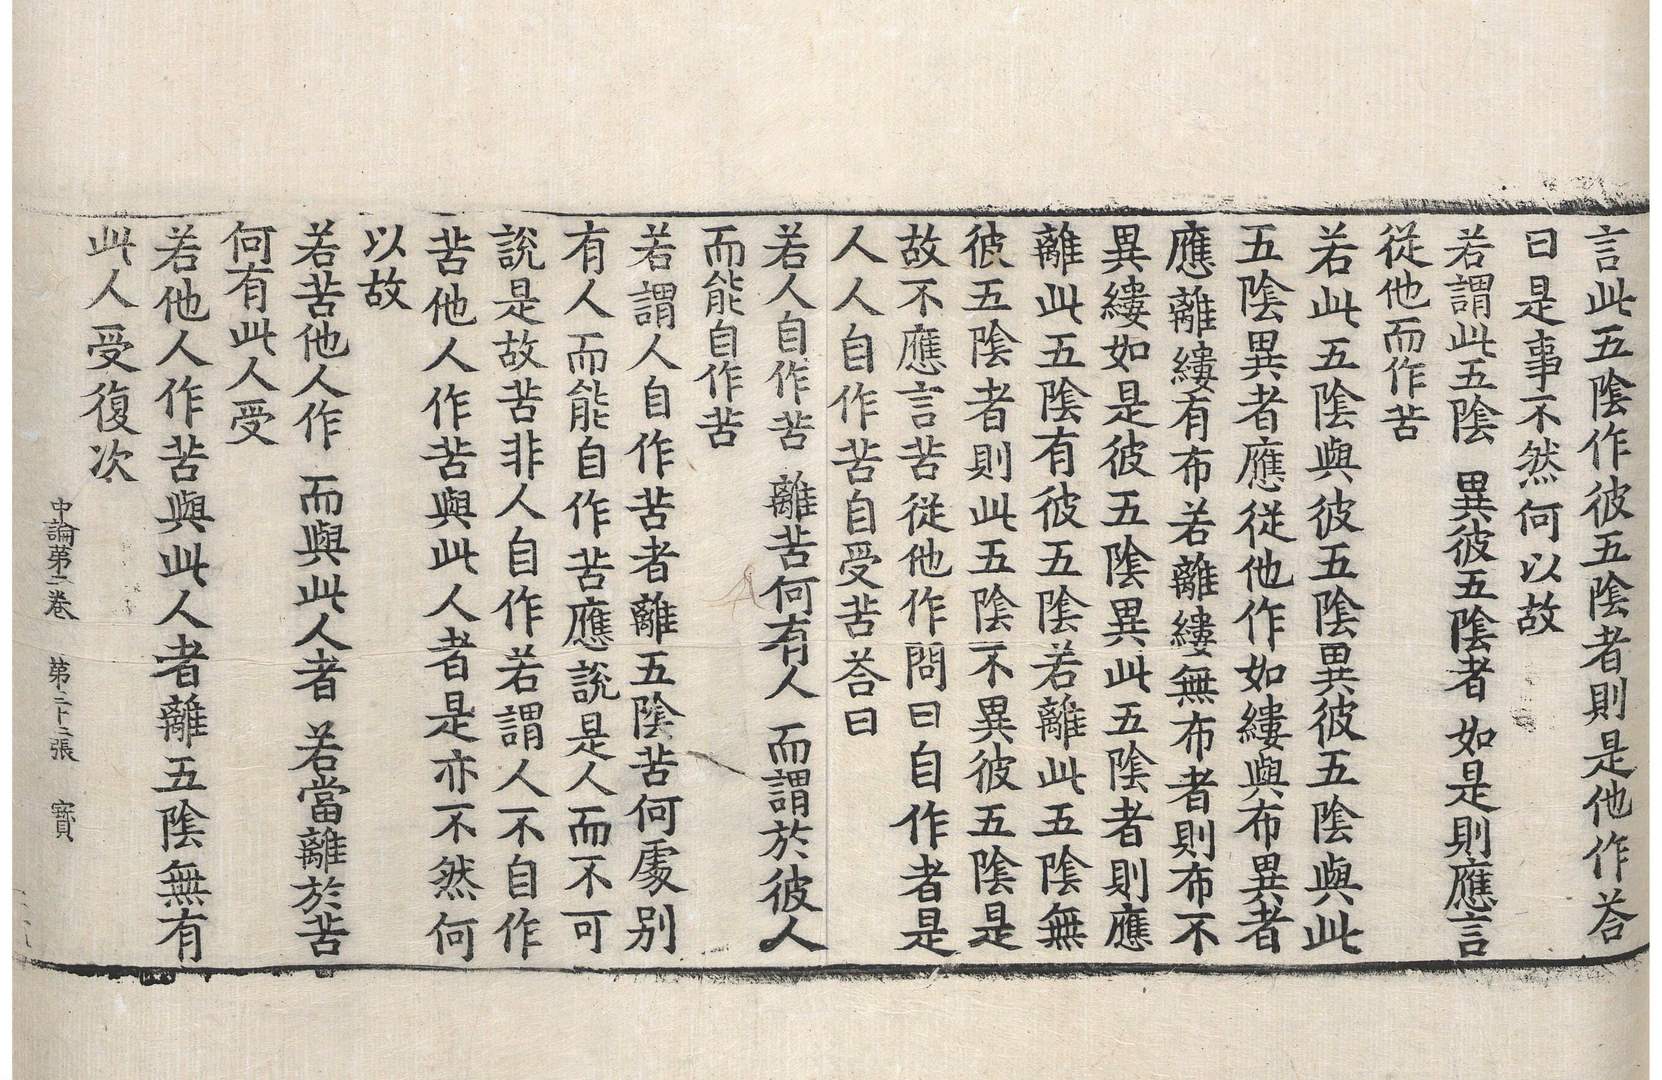 言此五陰作彼五陰者則是他作荅
曰是事不然何以故
若謂此五陰 異彼五陰者 如是則應言
從他而作苦
若此五陰與彼五陰異彼五陰與此
五陰異者應從他作如縷與布異者
應離縷有布若離縷無布者則布不
異縷如是彼五陰異此五陰者則應
離此五陰有彼五陰若離此五陰無
彼五陰者則此五陰不異彼五陰是
故不應言苦從他作問曰自作者是
人人自作苦自受苦荅曰
若人自作苦 離苦何有人 而謂於彼人
而能自作苦
若謂人自作苦者離五陰苦何處別
有人而能自作苦應說是人而不可
說是故苦非人自作若謂人不自作
苦他人作苦與此人者是亦不然何
以故
若苦他人作 而與此人者 若當離於苦
何有此人受
若他人作苦與此人者離五陰無有
此人受復次
中論第二卷 第二十二張 寶